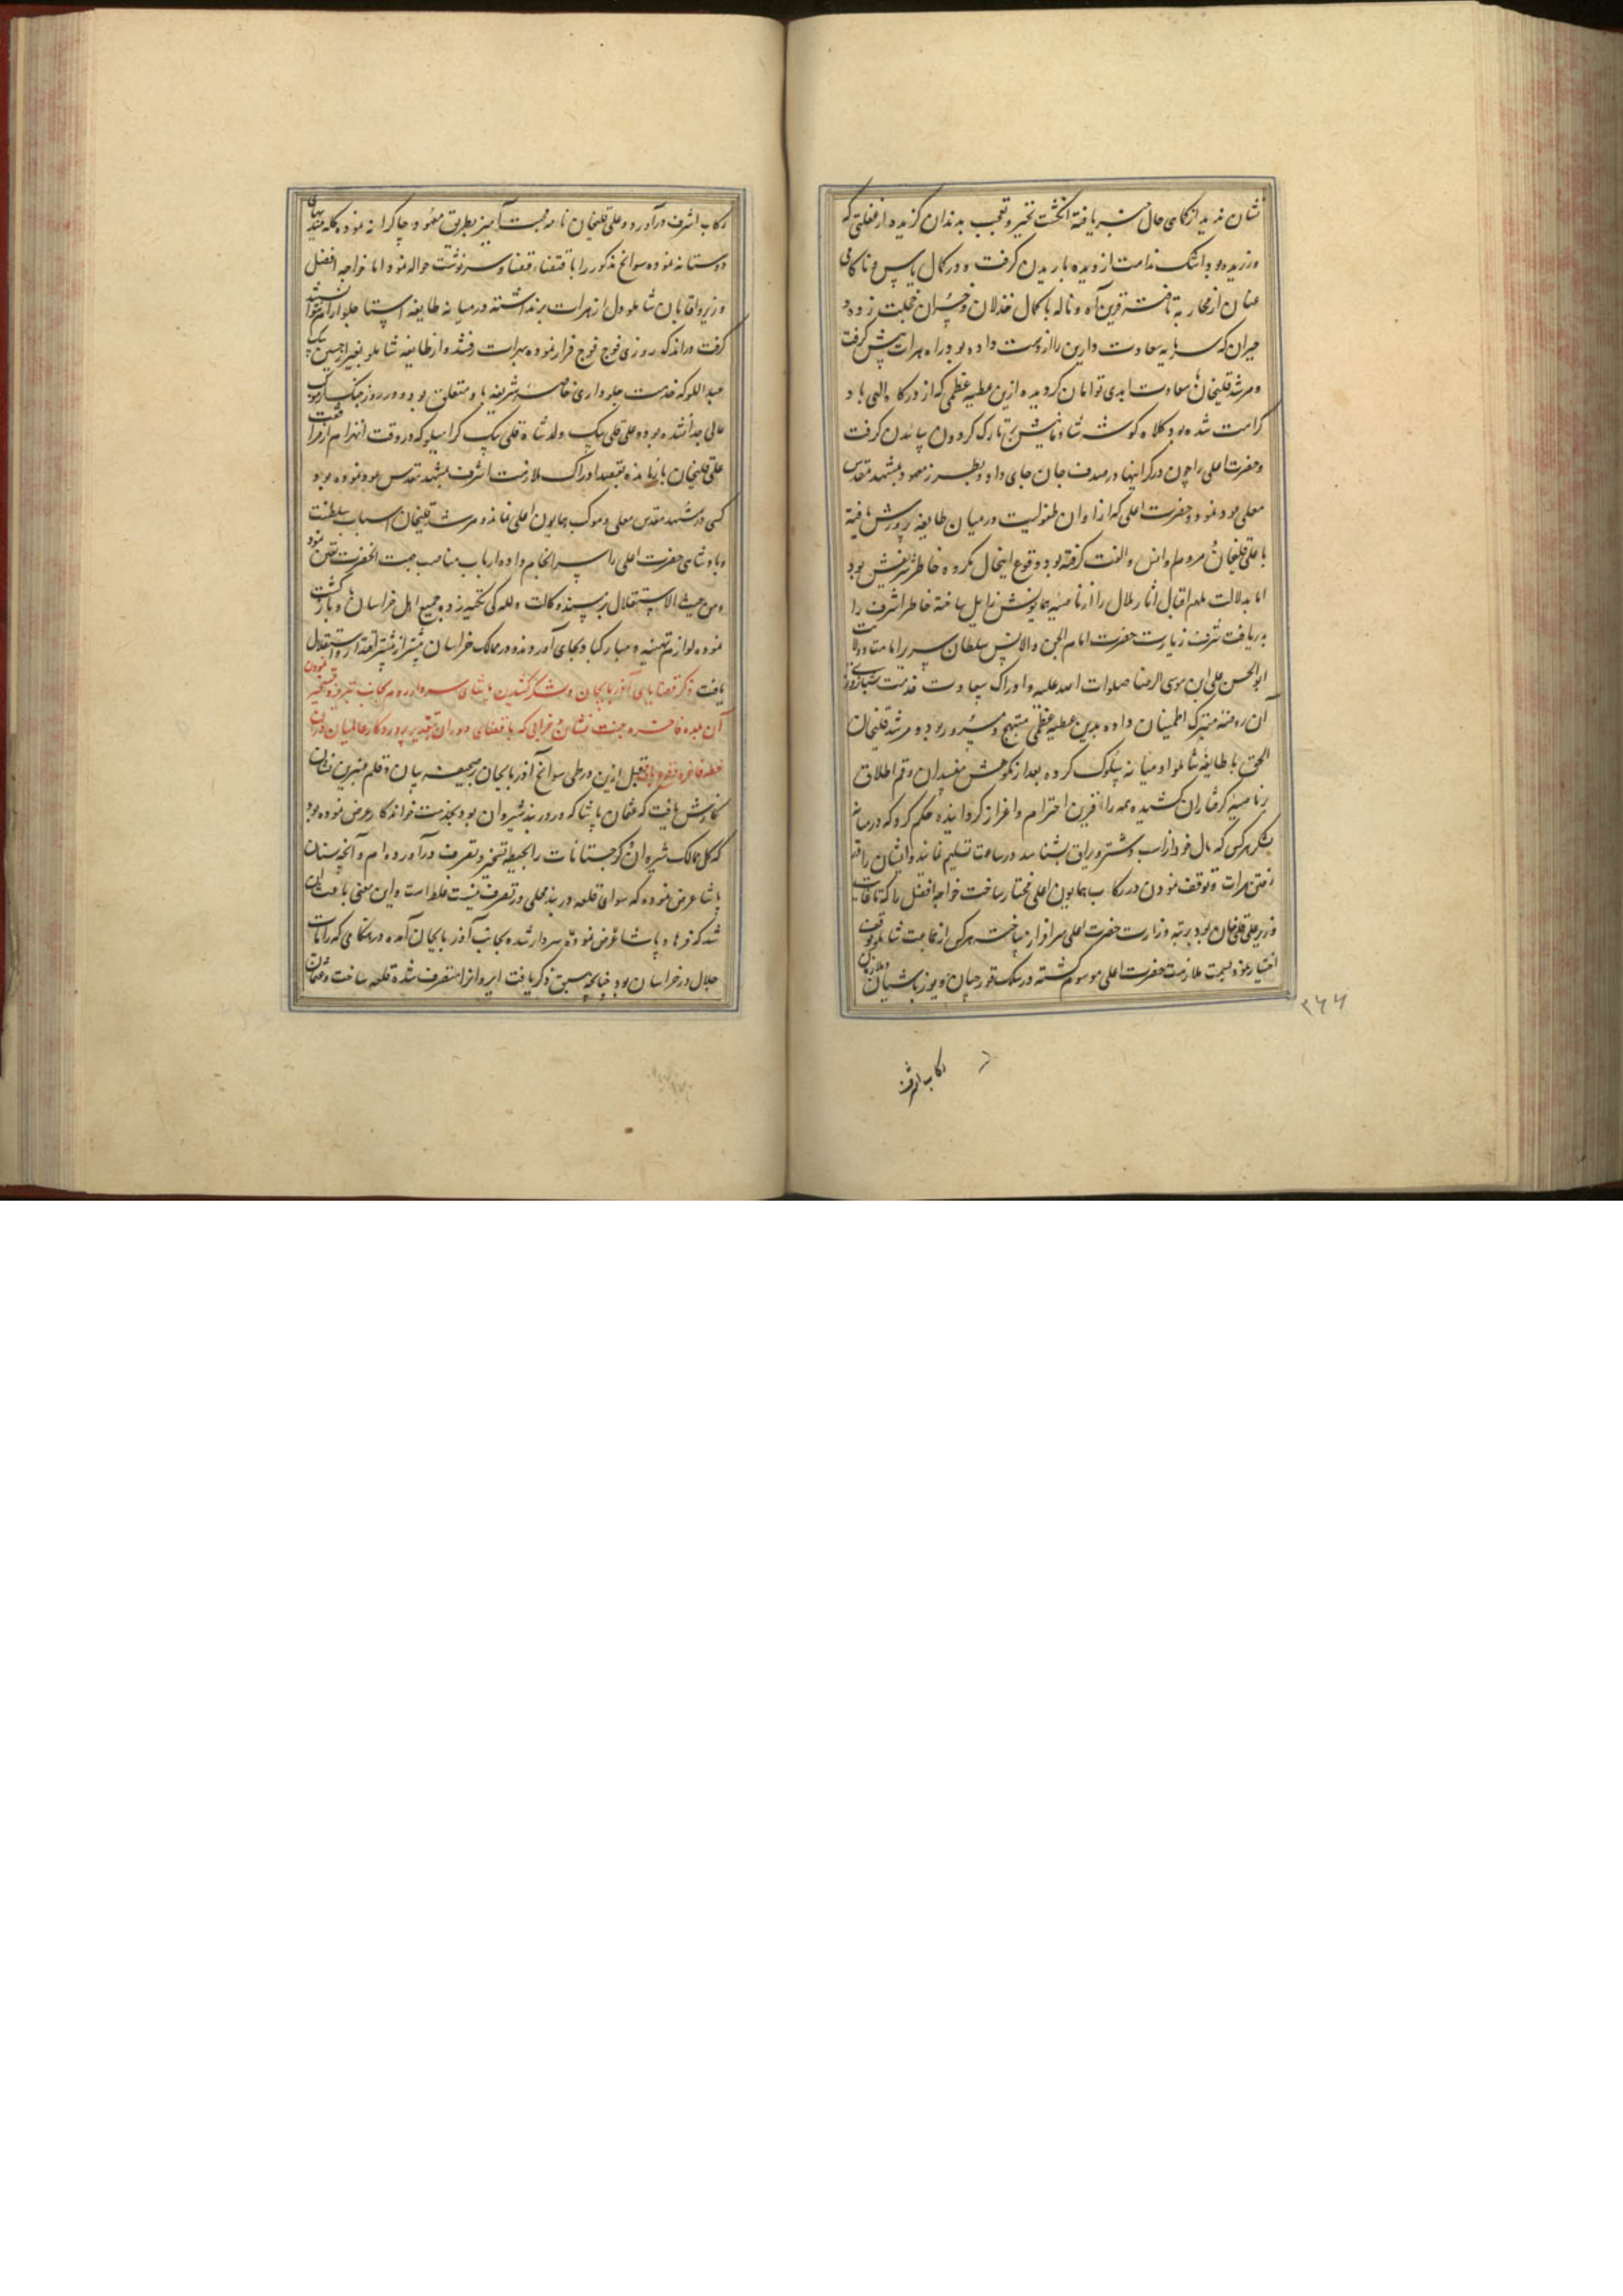 نشان ندید از کماهی حال خبر یافته انگشت تحیر و تعجب بدندان گزیده از غفلتی که
ورزیده بود اشک ندامت از دیده باریدن گرفت و در کمال یاس و ناکامی
عنان از محاربه تافته قرین آه و ناله با کمال خذلان و خسران خجلت زده و
حیران که سرمایه سعادت دارین را از دست داده بود راه هرات پیش گرفت
و مرشد قلیخان با سعادت ابدی توامان گردیده ازین عطیه عظمی که از درگاه الهی باو
کرامت شده بود کلاه گوشه شادمانیش بر تارک گردون سائیدن گرفت
و حضرت اعلی را چون در گرانبها در صدف جان جای داد و بطرز معهود بمشهد مقدس
معلی عود نمود و حضرت اعلی که از اوان طفولیت در میان طایفه پرورش یافته
با علیقلیخان مرحوم انس و الفت گرفته بود وقوع اینحال مکروه خاطر شریفش بود
اما بدلالت ملهم اقبال آثار ملال را از ناصیه همایونش زایل ساخته خاطر اشرف را
بدریافت شرف زیارت حضرت امام الجن و الانس سلطان سریر امامت و ولایت
ابوالحسن علی ابن موسی الرضا صلوات الله علیه و ادراک سعادت خدمت شبانروزی
آن روضه متبرکه اطمینان داده بدین عطیه عظمی مبتهج و مسرور بود و مرشد قلیخان
الحق با طایفه شاملو میانه سلوک کرده بعد از نکوهش مفسدان رقم اطلاق
بر ناصیه گرفتاران کشیده همه را قرین احترام و اعزاز گردانیده حکم کرد که در میانه
لشکر هر کس که مال خود از اسب و شتر و یراق بشناسد در ساعت تسلیم نمایند و ایشان را در
رفتن هرات و توقف نمودن در رکاب همایون اعلی مختار ساخت خواجه افضل را که تا غایت
وزیر علیقلیخان بود برتبه وزارت حضرت اعلی سرافراز ساخت هر کس از جماعت شاملو توقف
اختیار نموده بسمت ملازمت حضرت اعلی موسوم گشته در سلک قورچیان و یوزباشیان و ملازمان
۲۶۶
رکاب اشرف
رکاب اشرف درآورد و علیقلیخان نامه محبت آمیز بطریق معهود چاکرانه نموده گله مندیهای
دوستانه نموده سوانح مذکور را باقتضاء قضا و سرنوشت حواله نمود اما خواجه افضل
وزیر و آقایان شاملو دل از هرات برنداشته در میانه طایفه استاجلو آرام نتوانستند
گرفت در اندک روزی فوج فوج فرار نموده بهرات رفتند و از طایفه شاملو بغیر از حسین بیک
عبداللو که خدمت جلوداری خاصه شریفه باو متعلق بود و در روز جنگ از موکب
عالی جدا نشده بود و علیقلی بیک ولد شاهقلی بیک کرامیلو که در وقت انهزام از مرافقت
علیقلیخان بازمانده بقصد ادراک ملازمت اشرف بمشهد مقدس عود نموده بود
کسی در مشهد مقدس معلی و موکب همایون اعلی نماند و مرشد قلیخان اسباب سلطنت
و پادشاهی حضرت اعلی را سرانجام داده ارباب مناصب جهت آنحضرت تعیین نمود
و من حیث الاستقلال بر مسند وکالت و للگی تکیه زده جمیع اهل خراسان باو بازگشت
نموده لوازم تهنیه و مبارکباد بجای آوردند و در ممالک خراسان بیشتر از پیشتر اقتدار و استقلال
یافت ذکر قضایای آذربایجان و لشکر کشیدن پاشای سردار روم بجانب تبریز و تسخیر نمودن
آن بلده فاخره جنت نشان و خرابی که باقتضای دوران بتقدیر پروردگار عالمیان در آن
خطه فاخره وقوع یافت قبل ازین در طی سوانح آذربایجان بر صحیفه بیان و قلم عنبرین نشان
نگارش یافت که عثمان پاشا که در دربند شیروان بود بخدمت خواندکار عرض نموده بود
که کل ممالک شیروان و گرجستانات را بحیطه تسخیر و تصرف درآورده ام و آنچه سنان
پاشا عرض نموده که سوای قلعه دربند محلی در تصرف نیست غلط است و این معنی باعث آن
شد که فرهاد پاشا عرض نموده سردار شده بجانب آذربایجان آمده در هنگامی که رایات
جلال در خراسان بود چنانچه سبق ذکر یافت ایروان را متصرف شده قلعه ساخت و عثمان